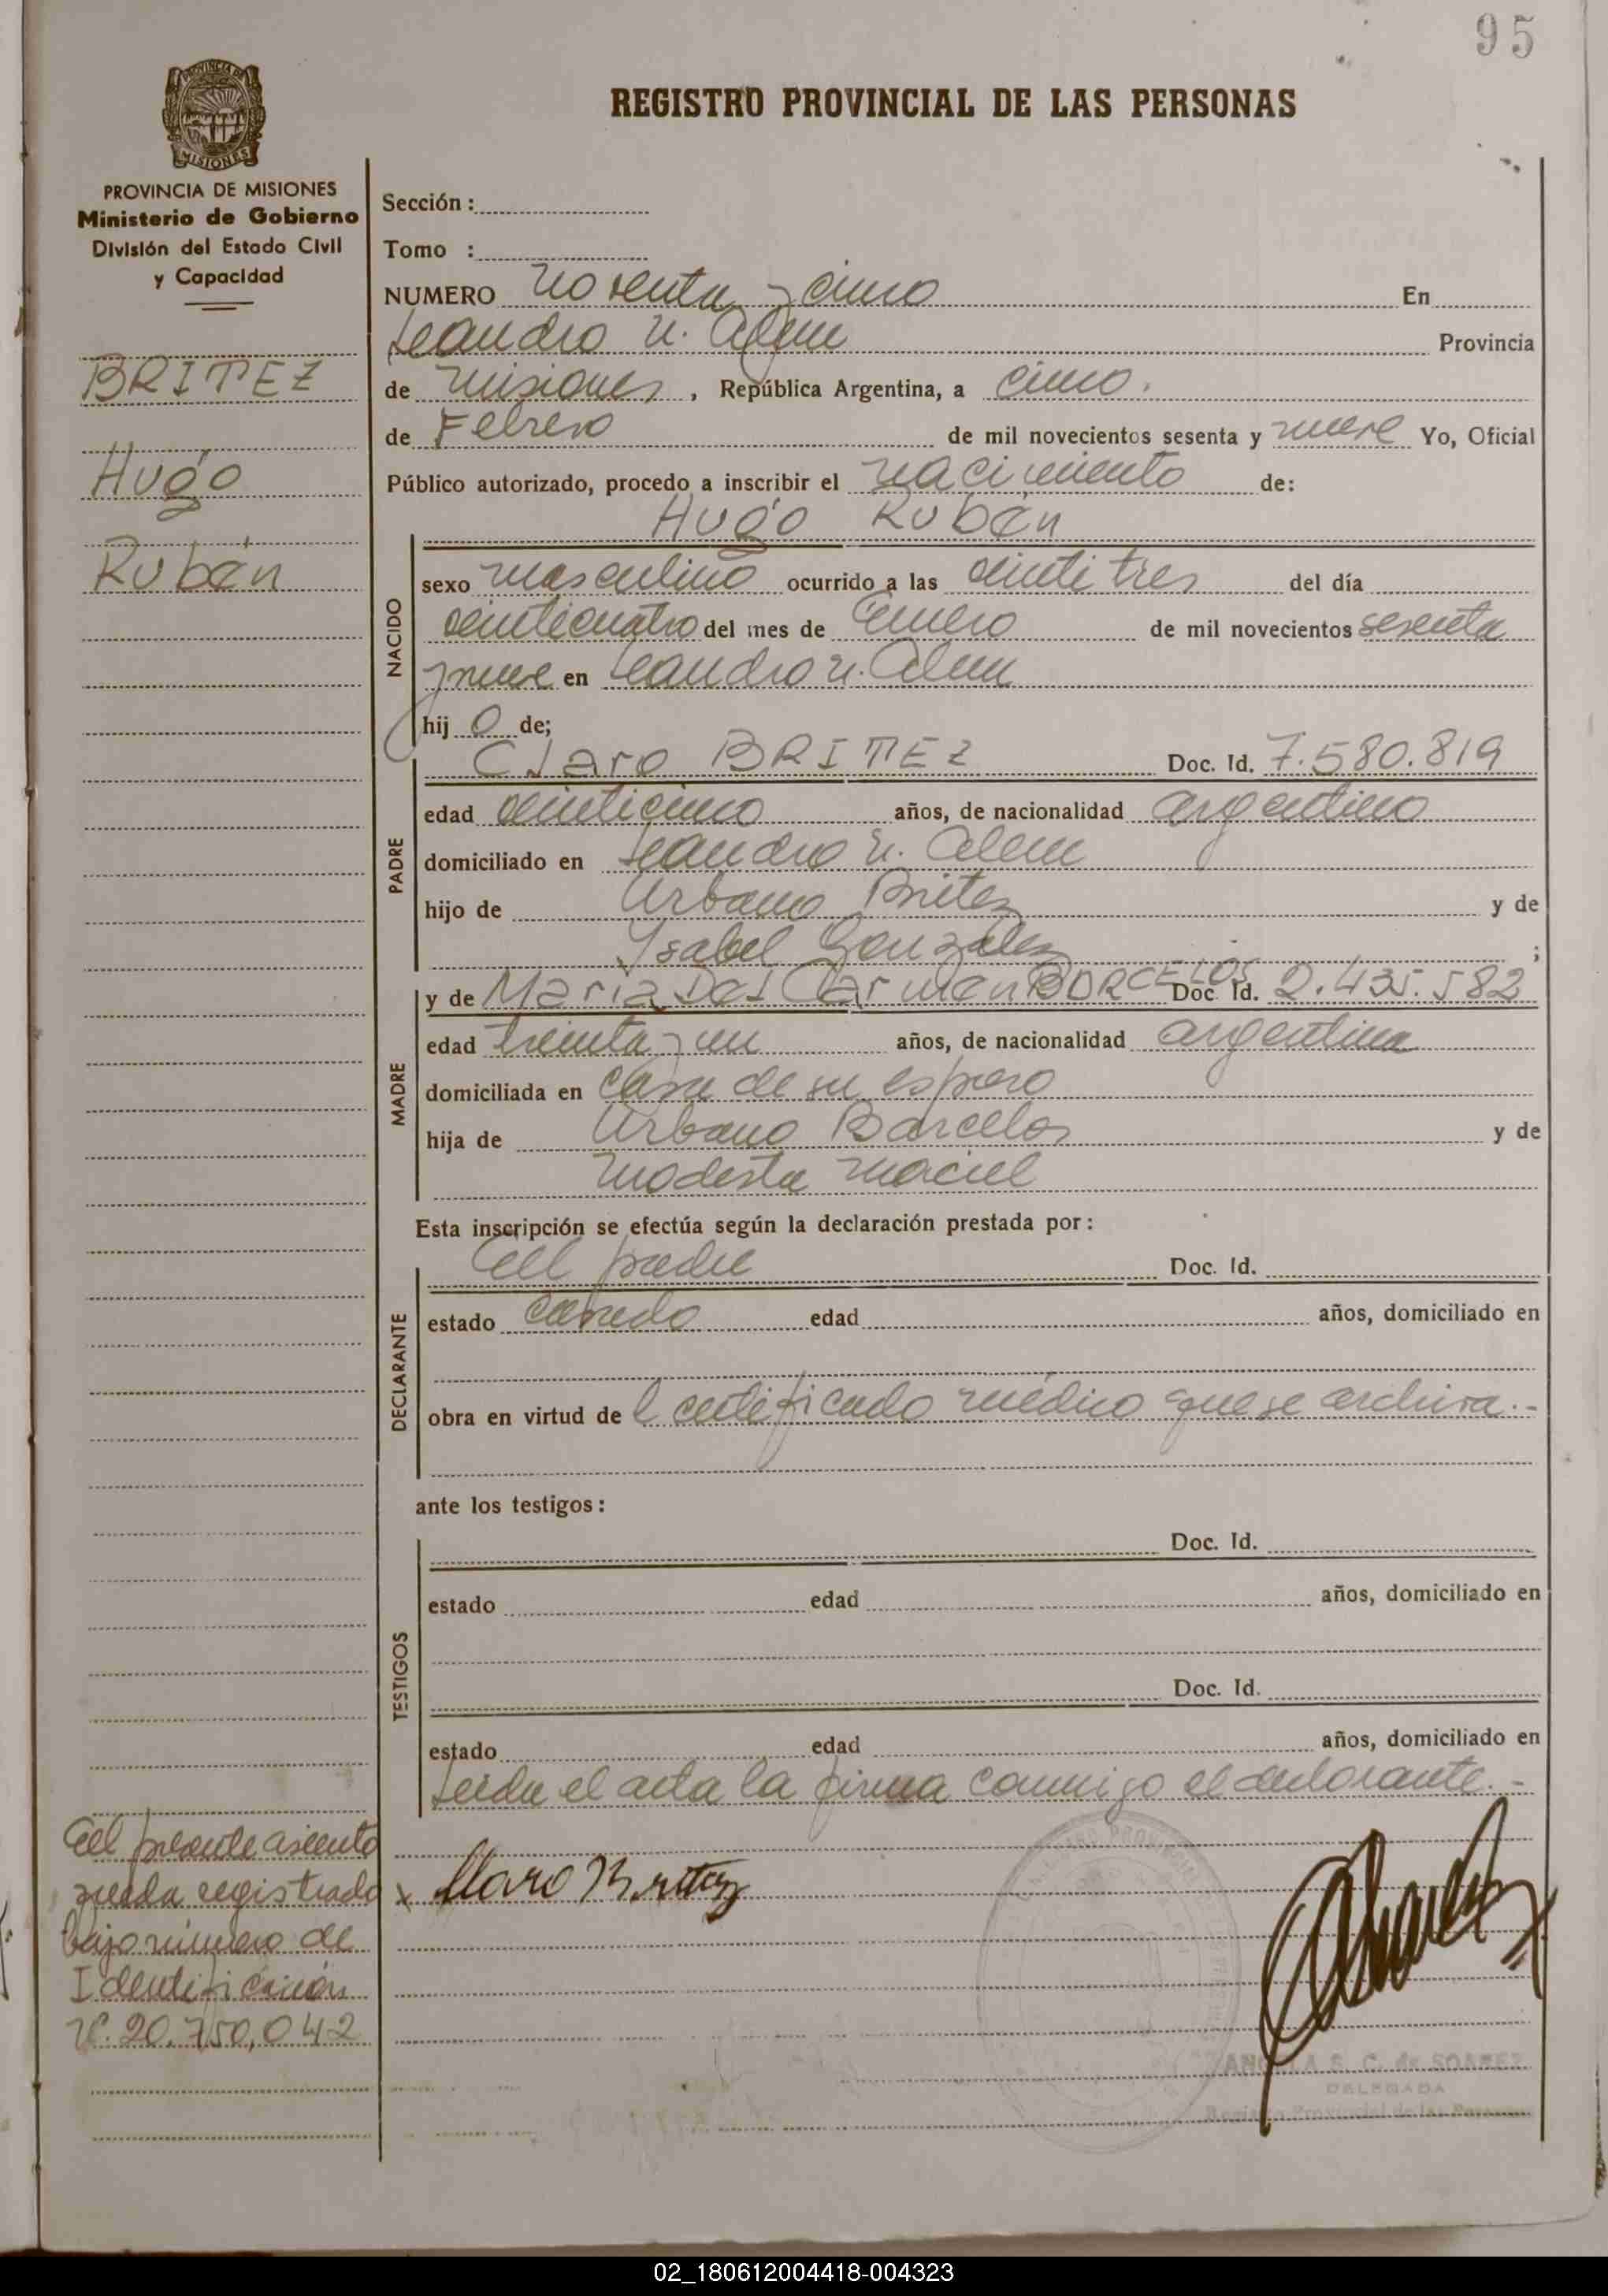 95
REGISTRO PROVINCIAL DE LAS PERSONAS
PROVINCIA DE MISIONES
MISIONES
PROVINCIA DE MISIONES
Ministerio de Gobierno
División del Estado Civil
y Capacidad
BRITEZ
Hugo
Rubén
Sección :
Tomo :
NUMERO Noventa y cinco En
Leandro N. Alem Provincia
de Misiones, República Argentina, a cinco.
de Febrero de mil novecientos sesenta y nueve Yo, Oficial
Público autorizado, procedo a inscribir el nacimiento de:
Hugo Rubén
NACIDO
sexo masculino ocurrido a las veintitres del día
veinticuatro del mes de Enero de mil novecientos sesenta
y nueve en Leandro N. Alem
hij o de;
PADRE
Claro BRITEZ Doc. Id. 7.580.819
edad veinticinco años, de nacionalidad argentino
domiciliado en Leandro N. Alem
hijo de Urbano Britez y de
Ysabel Gonzalez ;
MADRE
y de Maria Del Carmen BORCELOS Doc. Id. 2.435.582
edad treinta y un años, de nacionalidad argentina
domiciliada en casa de su esposo
hija de Urbano Barcelos y de
Modesta Maciel
Esta inscripción se efectúa según la declaración prestada por :
DECLARANTE
El padre Doc. Id.
estado casado edad años, domiciliado en
obra en virtud de l certificado médico que se archiva.-
ante los testigos :
TESTIGOS
Doc. Id.
estado edad años, domiciliado en
Doc. Id.
estado edad años, domiciliado en
Leída el acta la firma conmigo el declarante.-
El presente asiento
queda registrado
bajo número de
Identificación
N°. 20.750,042
x Claro Britez
S. C. de SOAREZ
DELEGADA
Registro Provincial de las Personas
02_180612004418-004323